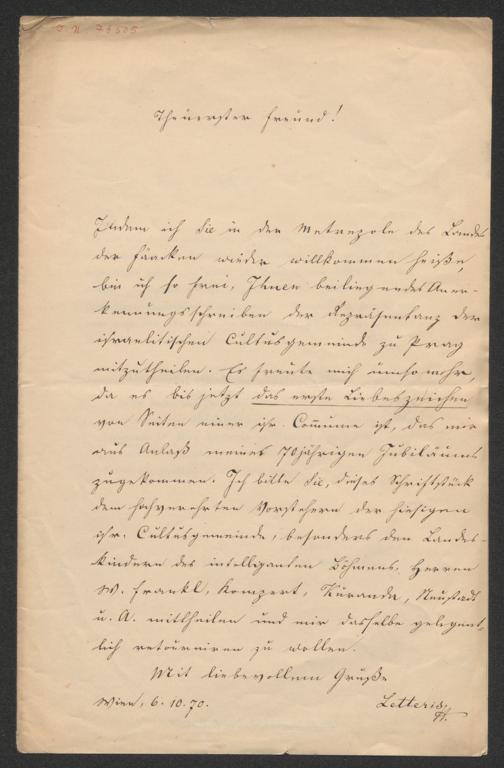 I. N. 79505
Theuerster Freund!
Indem ich Sie in der Metropole des Landes
der Phäaken wieder willkommen heiße,
bin ich so frei, Ihnen beiliegendes Aner-
kennungsschreiben der Repräsentanz der
israelitischen Cultusgemeinde zu Prag
mitzutheilen. Es freute mich umsomehr,
da es bis jetzt das erste Liebeszeichen
von Seiten einer isr. Com̄une ist, das mir
aus Anlaß meines 70jährigen Jubiläums
zugekommen. Ich bitte Sie, dieses Schriftstück
dem hochverehrten Vorstehern der hiesigen
isr. Cultusgemeinde, besonders den Landes-
kindern des intelligenten Böhmens, Herren
W. Frankl, Kompert, Kuranda, Neustadt
u. A. mittheilen und mir dasselbe gelegent-
lich retourniren zu wollen.
Mit liebevollem Gruße
Wien, 6. 10. 70. Letteris,